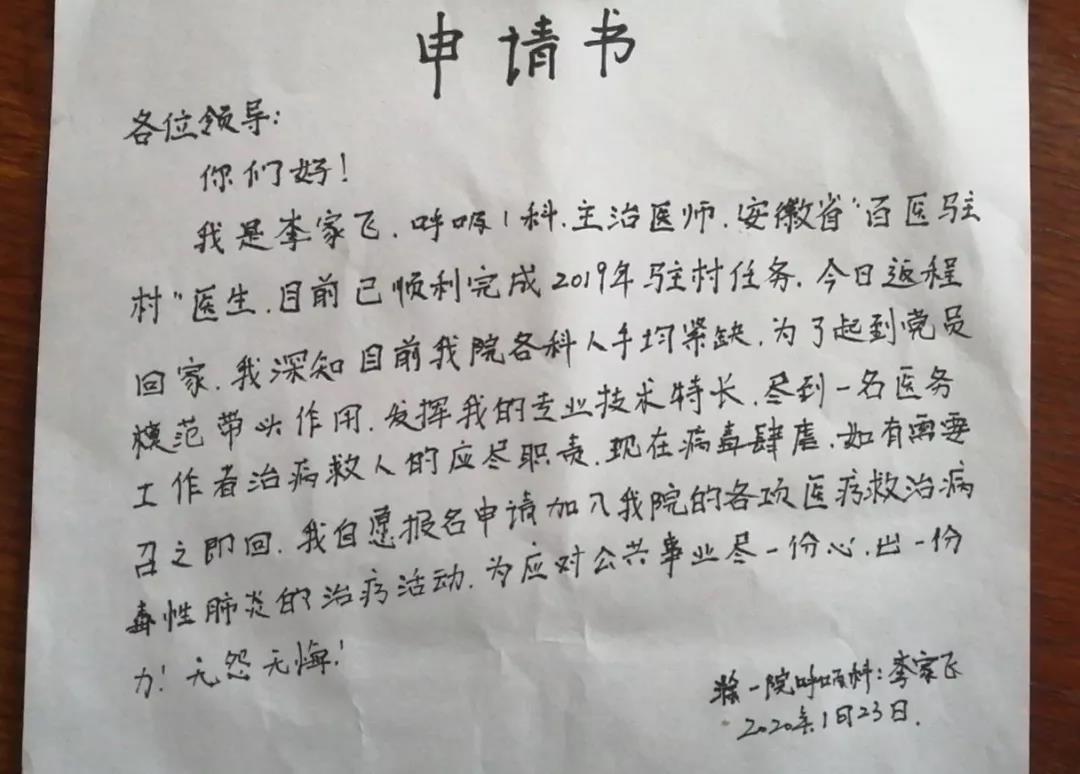 申请书
各位领导:
你们好!
我是李家飞.呼吸1科.主治医师.安徽省"百医驻
村"医生.目前已顺利完成2019年驻村任务.今日返程
回家.我深知目前我院各科人手均紧缺.为了起到党员
模范带头作用.发挥我的专业技术特长.尽到一名医务
工作者治病救人的应尽职责.现在病毒肆虐.如有需要
召之即回.我自愿报名申请加入我院的各项医疗救治病
毒性肺炎的治疗活动.为应对公共事业尽一份心.出一份
力!无怨无悔!
滁一院呼吸科:李家飞
2020年1月23日.